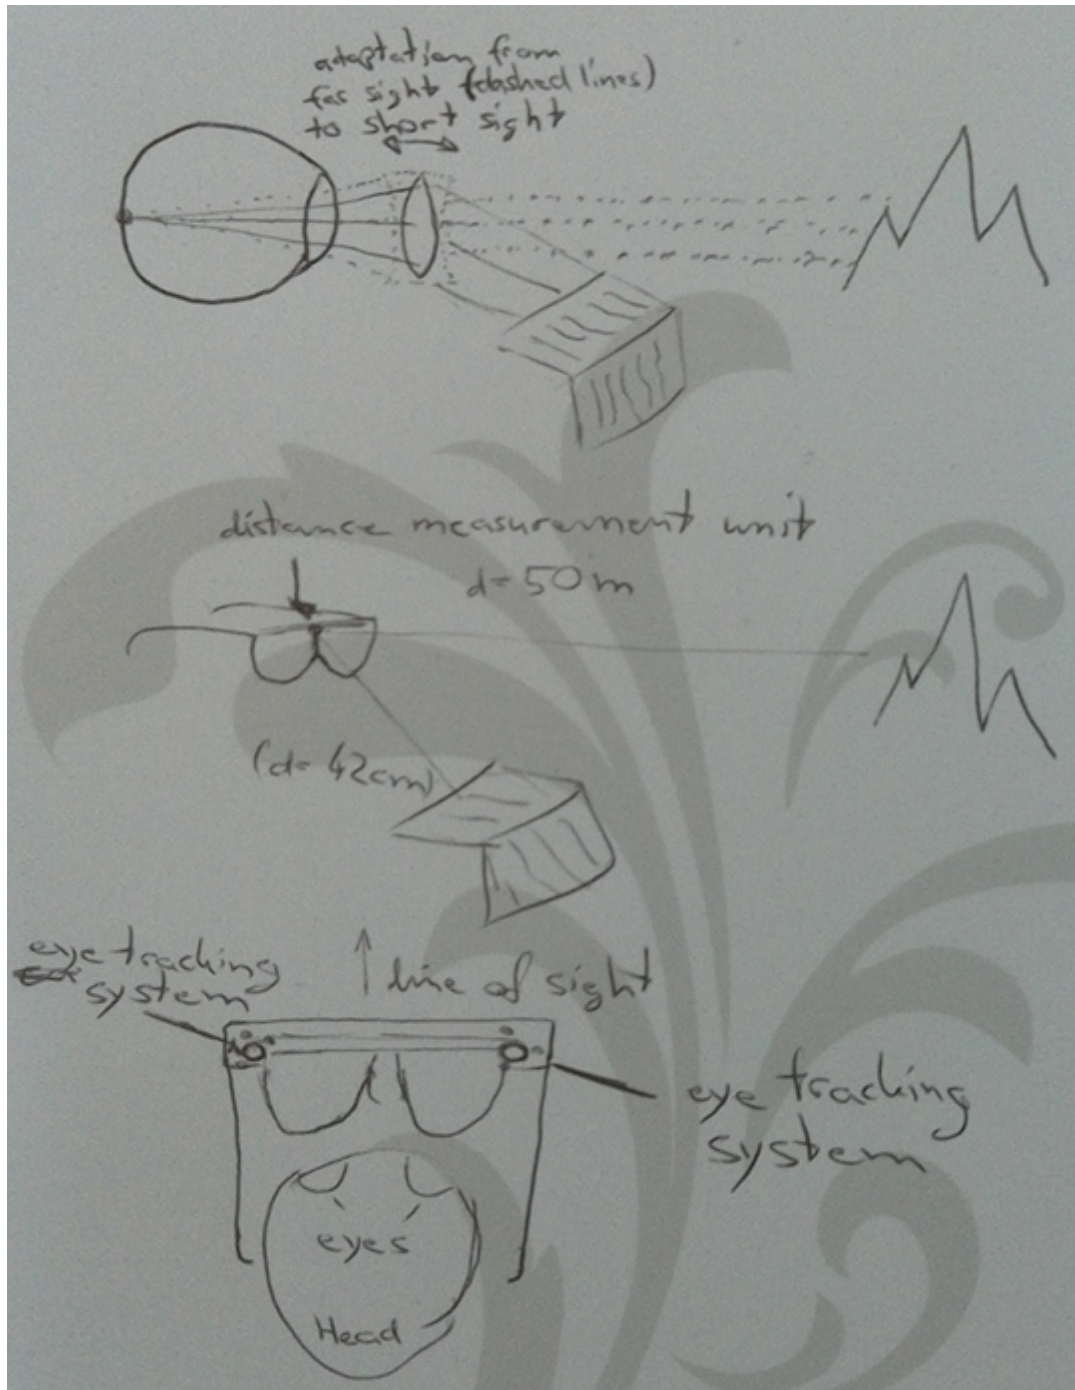 adaptation from
far sight (dashed lines)
to short sight
distance measurement unit
d= 50 m
(d= 42cm)
eye tracking
system
line of sight
eye tracking
system
eyes
Head